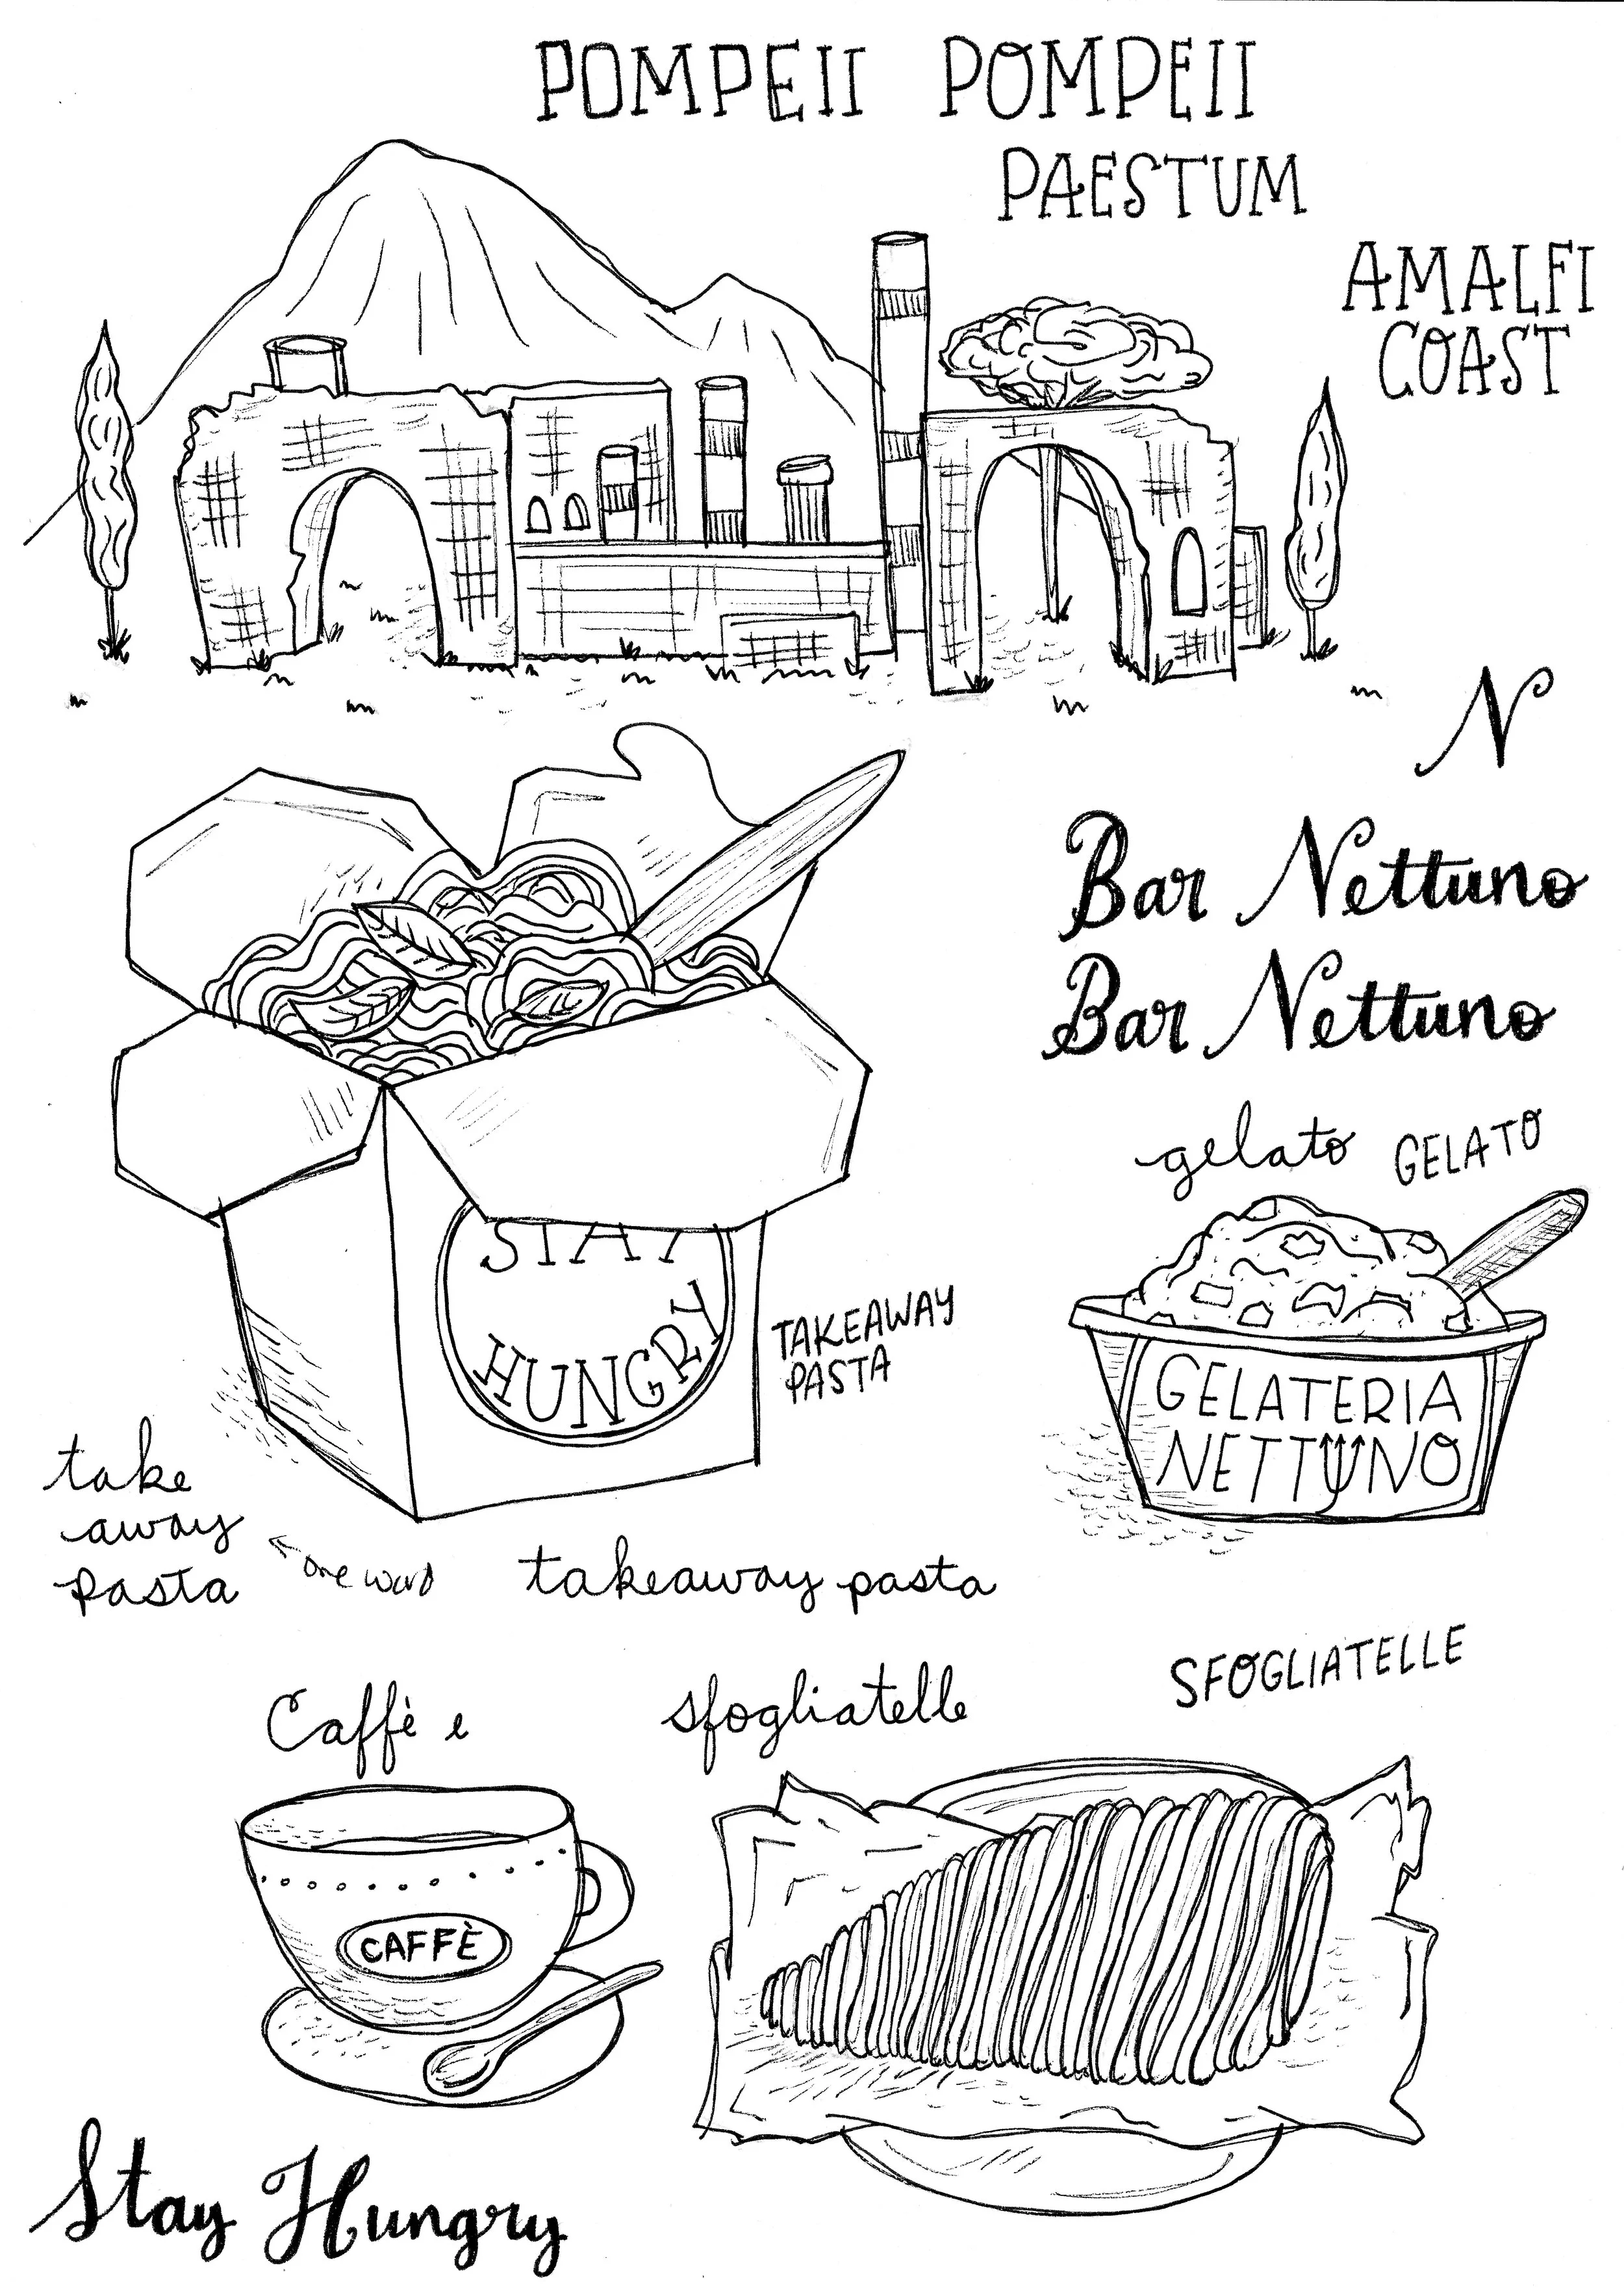 POMPEII POMPEII
PAESTUM
AMALFI
COAST
N
Bar Nettuno
Bar Nettuno
gelato GELATO
STAY
HUNGRY
TAKEAWAY
PASTA
GELATERIA
NETTUNO
take
away
pasta
← one word
takeaway pasta
SFOGLIATELLE
Caffè e sfogliatelle
CAFFÈ
Stay Hungry